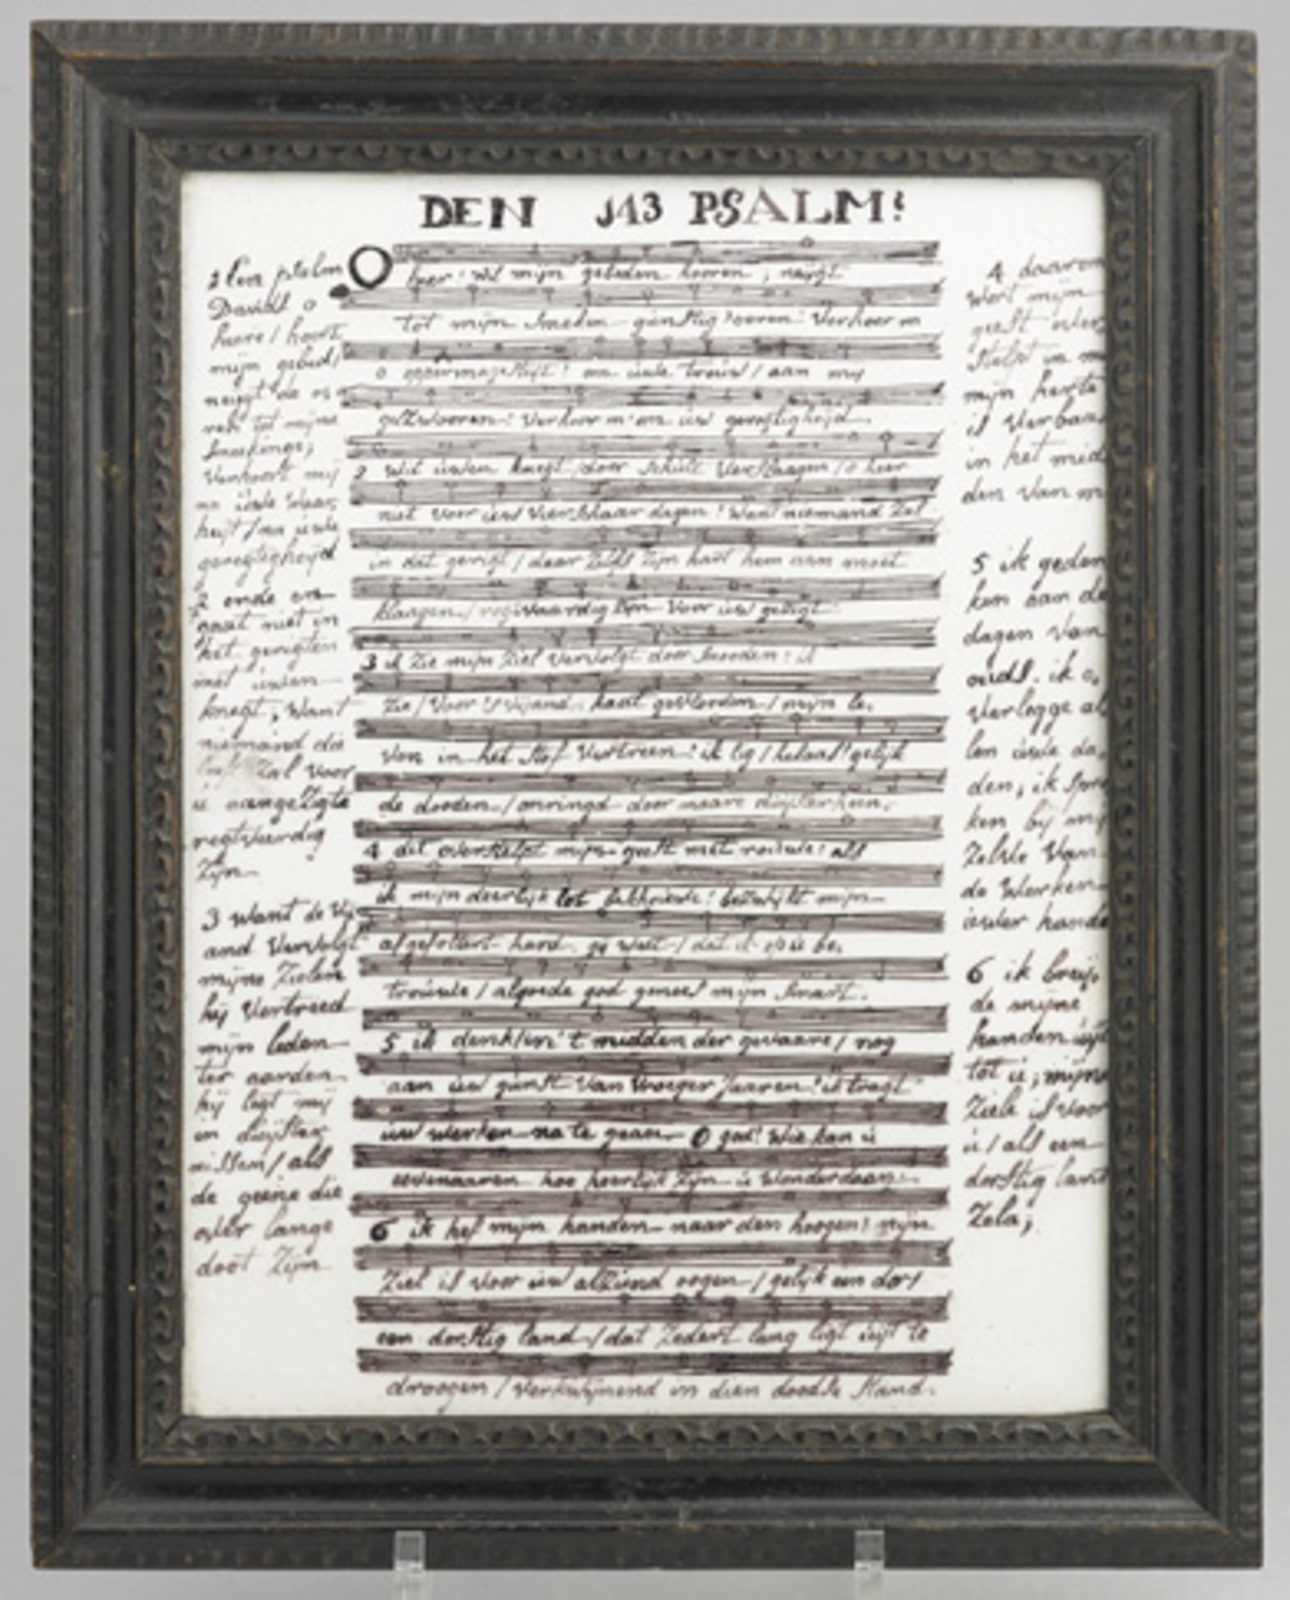 DEN 143 PSALM:
1 Een psalm
Davids o
heere / hoort
mijn gebed /
neigt de oo
ren tot mijne
smekinge,
verhoort mij
na uwe waar,
heijt / na uwe
geregtigheijd
2 ende en
gaat niet in
het gerigten
met uwen
knegt, want
niemand die
leeft zal voor
u aangezigte
regtvaardig
zijn
3 want de vij
and vervolgt
mijne zielen
hij vertreed
mijn leden
ter aarden
hij legt mij
in duijster
nissen / als
de geene die
over lange
doot zijn
O heer! wil mijn gebeden hooren, neijgt
tot mijn smeken gunstig d'ooren: Verhoor m
o oppermajestijt! om uwe trouw / aan mij
gezwooren: Verhoor m'om uw geregtigheijd.
2 Wil uwen knegt / door schult verslaagen / o heer
niet voor uw vierschaar dagen! Want niemand zal
in dat gerigt / daar zelfs zijn hart hem aan moet
klaagen / regtvaardig zijn voor uw gezigt
3 ik zie mijn ziel vervolgt door snooden: ik
zie / voor 's vijands haat gevlooden / mijn le,
ven in het stof vertreen: ik lig / helaas! gelijk
de dooden / omringd door naare duijsterheen.
4 dit overstelpt mijn geest met rouwe: als
ik mijn deerlijk lot beschouwe: bezwijkt mijn
afgefolterd hard. gij weet / dat ik op u be,
trouwe / algoede god genees mijn smart.
5 ik denk / in 't midden der gevaare / nog
aan uw gunst van vroeger jaaren! ik tragt
uw werken na te gaan. O god! Wie kan u
evenaaren hoe heerlijk zijn u wonderdaan:
6 ik hef mijn handen naar den hoogen: mijn
ziel is voor uw alziend oogen / gelijk een dor /
een dorstig land / dat zedert lang ligt uijt te
droogen / verkwijnend in dien doodse stand.
4 daarom
wort mijn
geest over
stelpt in m
mijn herte
is verbaa
in het mid
den van m
5 ik geden
ken aan de
dagen van
ouds. ik o,
verlegge al
len uwe da,
den, ik spre
ken bij mij
zelve van
de werken
uwer hande
6 ik breij,
de mijne
handen uijt
tot u, mijne
ziele is voor
u / als een
dorstig land
Zela,